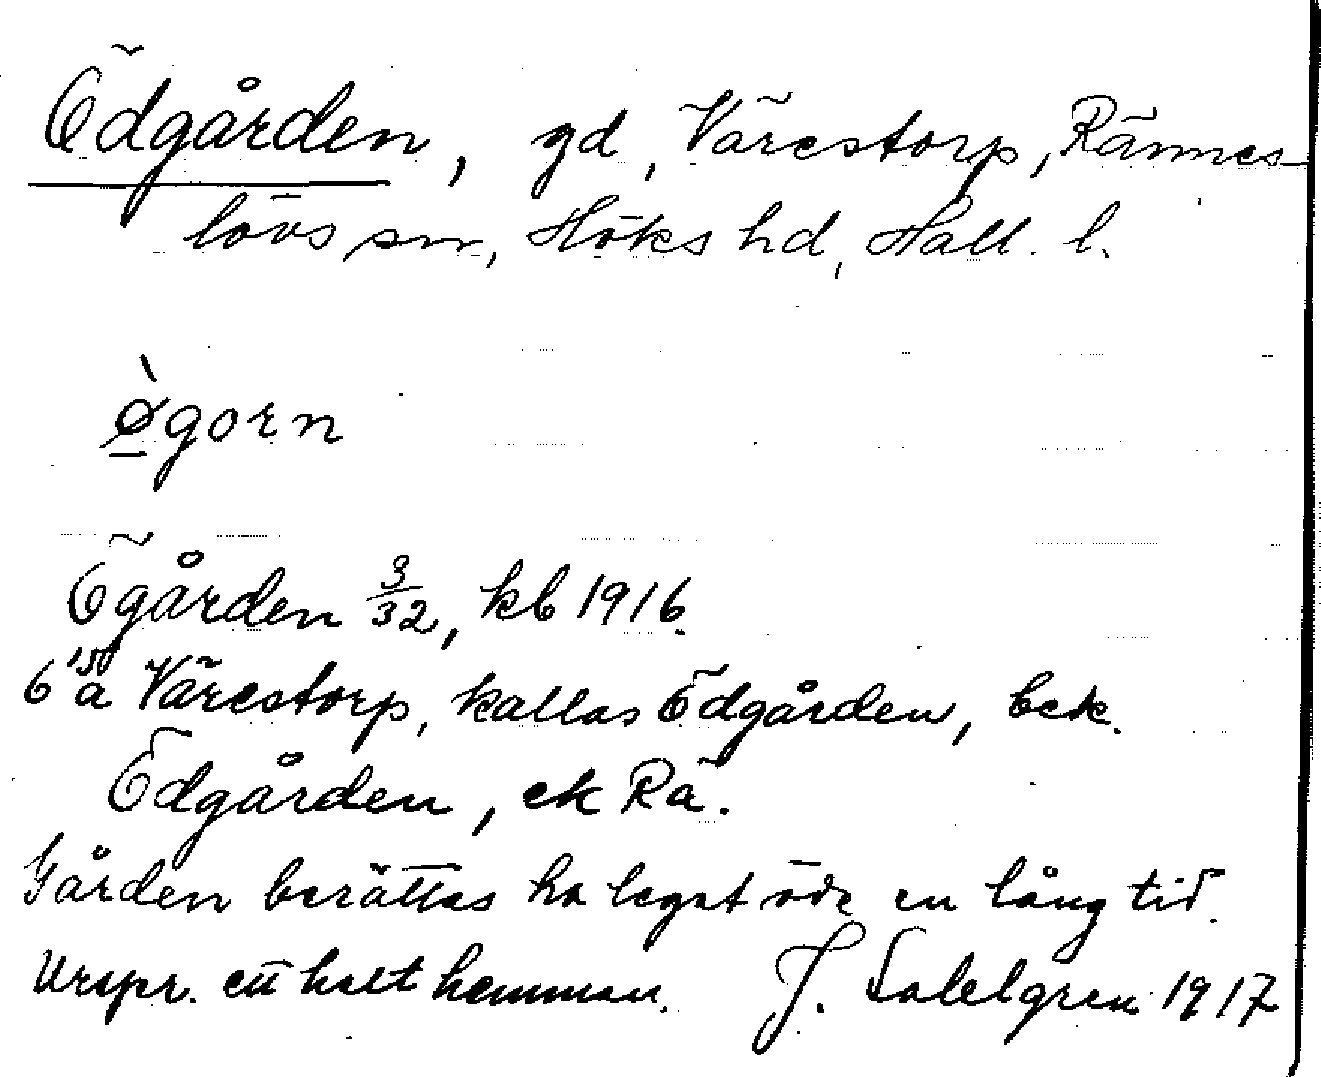 Ödgården, gd, Värestorp, Rännes-
lövs sn, Höks hd, Hall. l.
ø̀gorn
Ögården 3/32, kb 1916.
6 a Värestorp, kallas Ödgården, bek.
Ödgården, ek Rä.
Gården berättas ha legat öde en lång tid.
Urspr. ett helt hemman. J. Sahlgren 1917